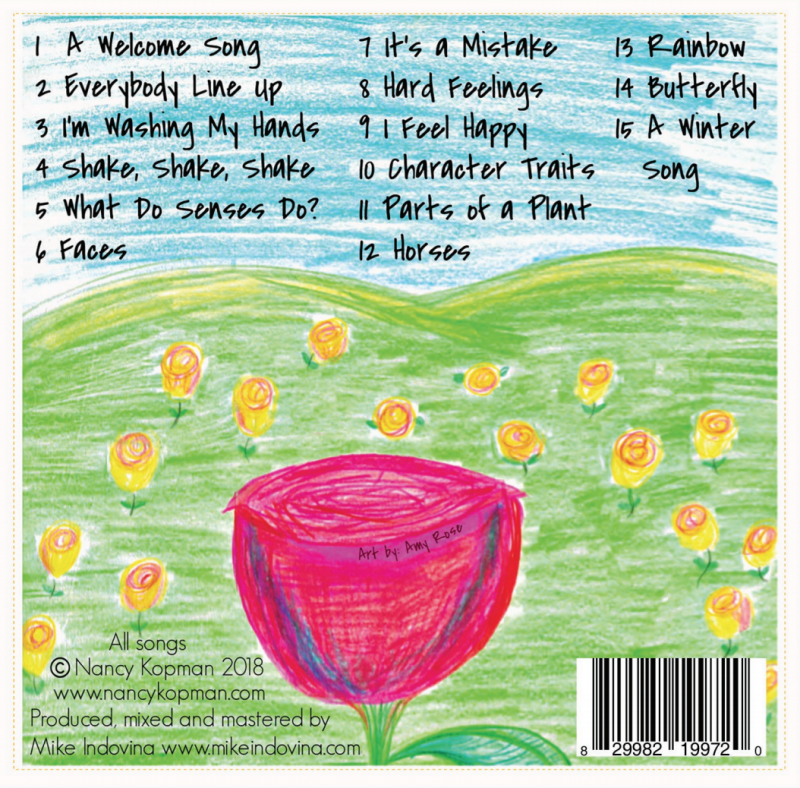 1 A Welcome Song
2 Everybody Line Up
3 I'm Washing My Hands
4 Shake, Shake, Shake
5 What Do Senses Do?
6 Faces
7 It's a Mistake
8 Hard Feelings
9 I Feel Happy
10 Character Traits
11 Parts of a Plant
12 Horses
13 Rainbow
14 Butterfly
15 A Winter
Song
Art by: Amy Rose
All songs
© Nancy Kopman 2018
www.nancykopman.com
Produced, mixed and mastered by
Mike Indovina www.mikeindovina.com
8 29982 19972 0